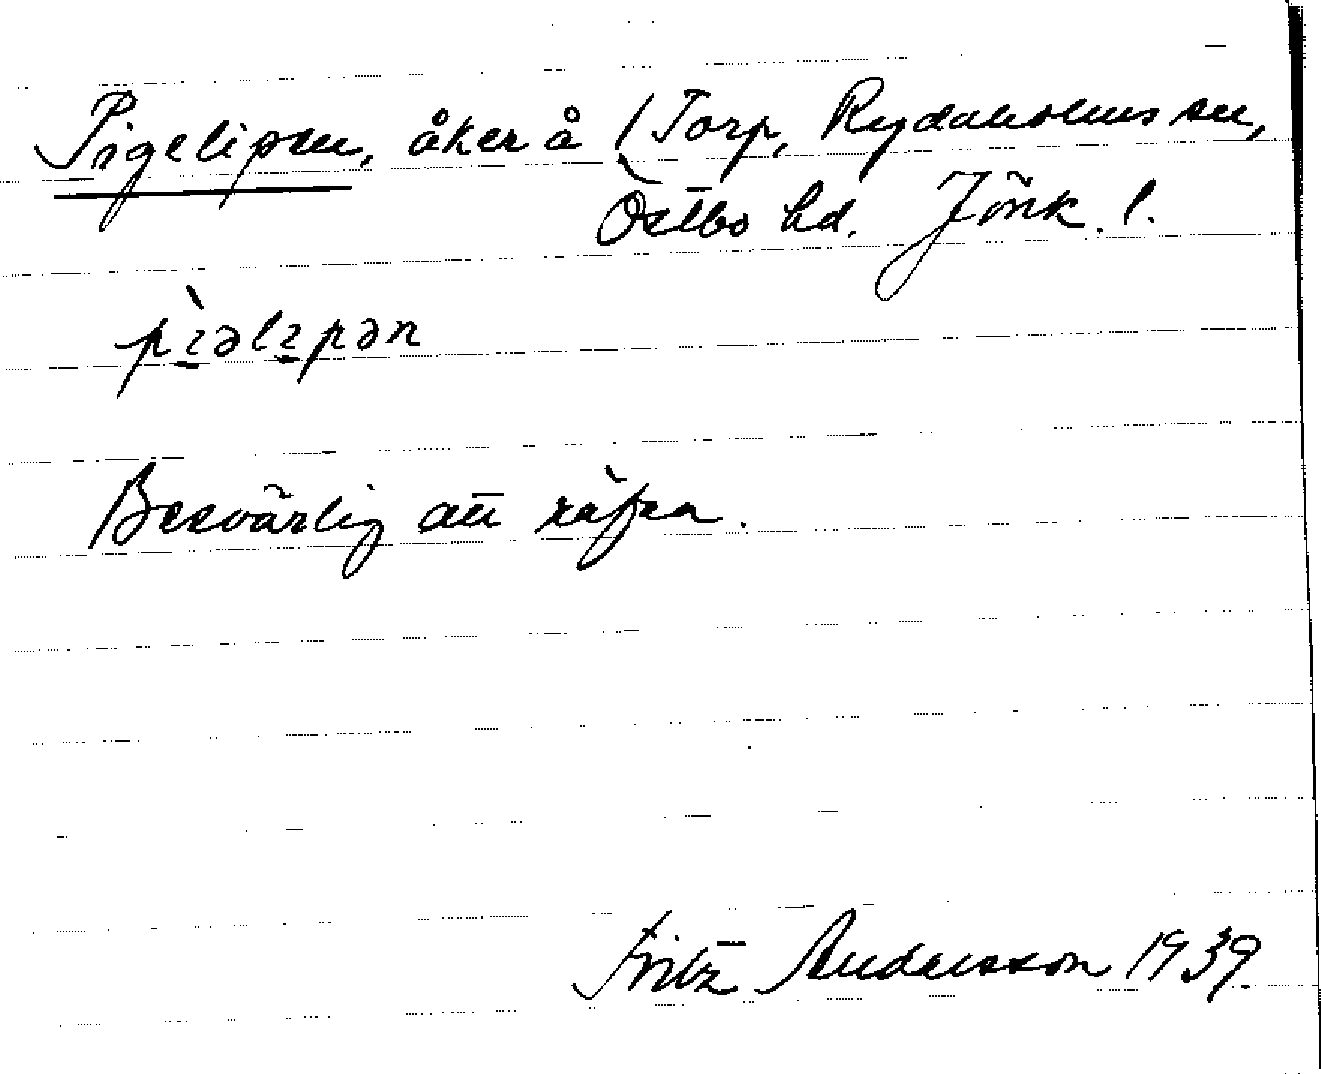 Pigelipen, åker å Torp, Rydaholms sn,
Östbo hd. Jönk. l.
pìəlɪpən
Besvärlig att räfsa.
Fritz Andersson 1939.